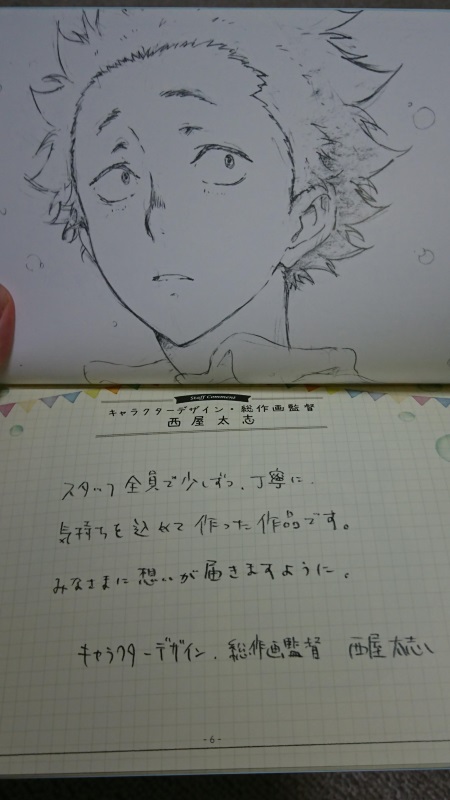 Staff Comment
キャラクターデザイン・総作画監督
西屋太志
スタッフ全員で少しずつ、丁寧に、
気持ちを込めて作った作品です。
みなさまに想いが届きますように。
キャラクターデザイン、総作画監督 西屋太志
-6-